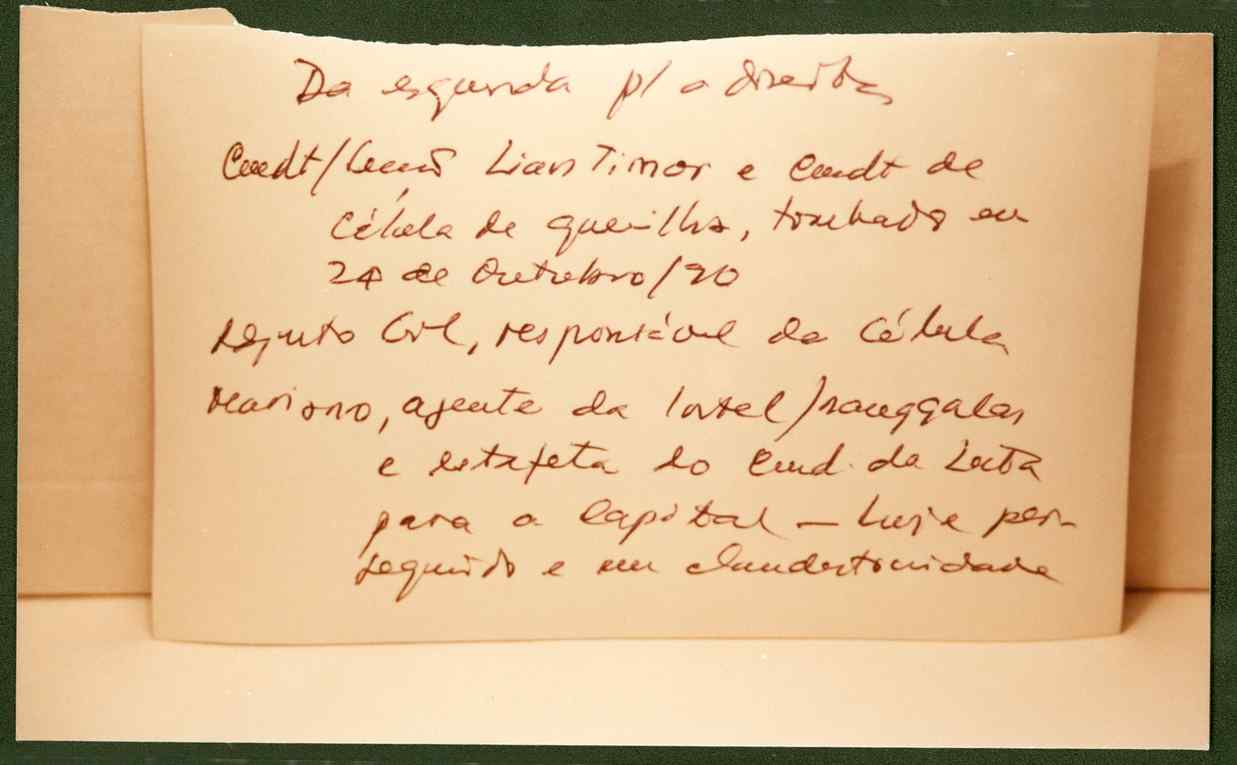 Da esquerda p/ a direita
Cmdt/ Lian Timor e Cmdt de
Célula de guerrilha, tombado em
24 de Outubro/90
Adjunto Civil, responsável da Célula
Mariano, agente da Intel/Nanggalas
e estafeta do Cmd. da Luta
para a Capital — hoje per-
seguido e em clandestinidade